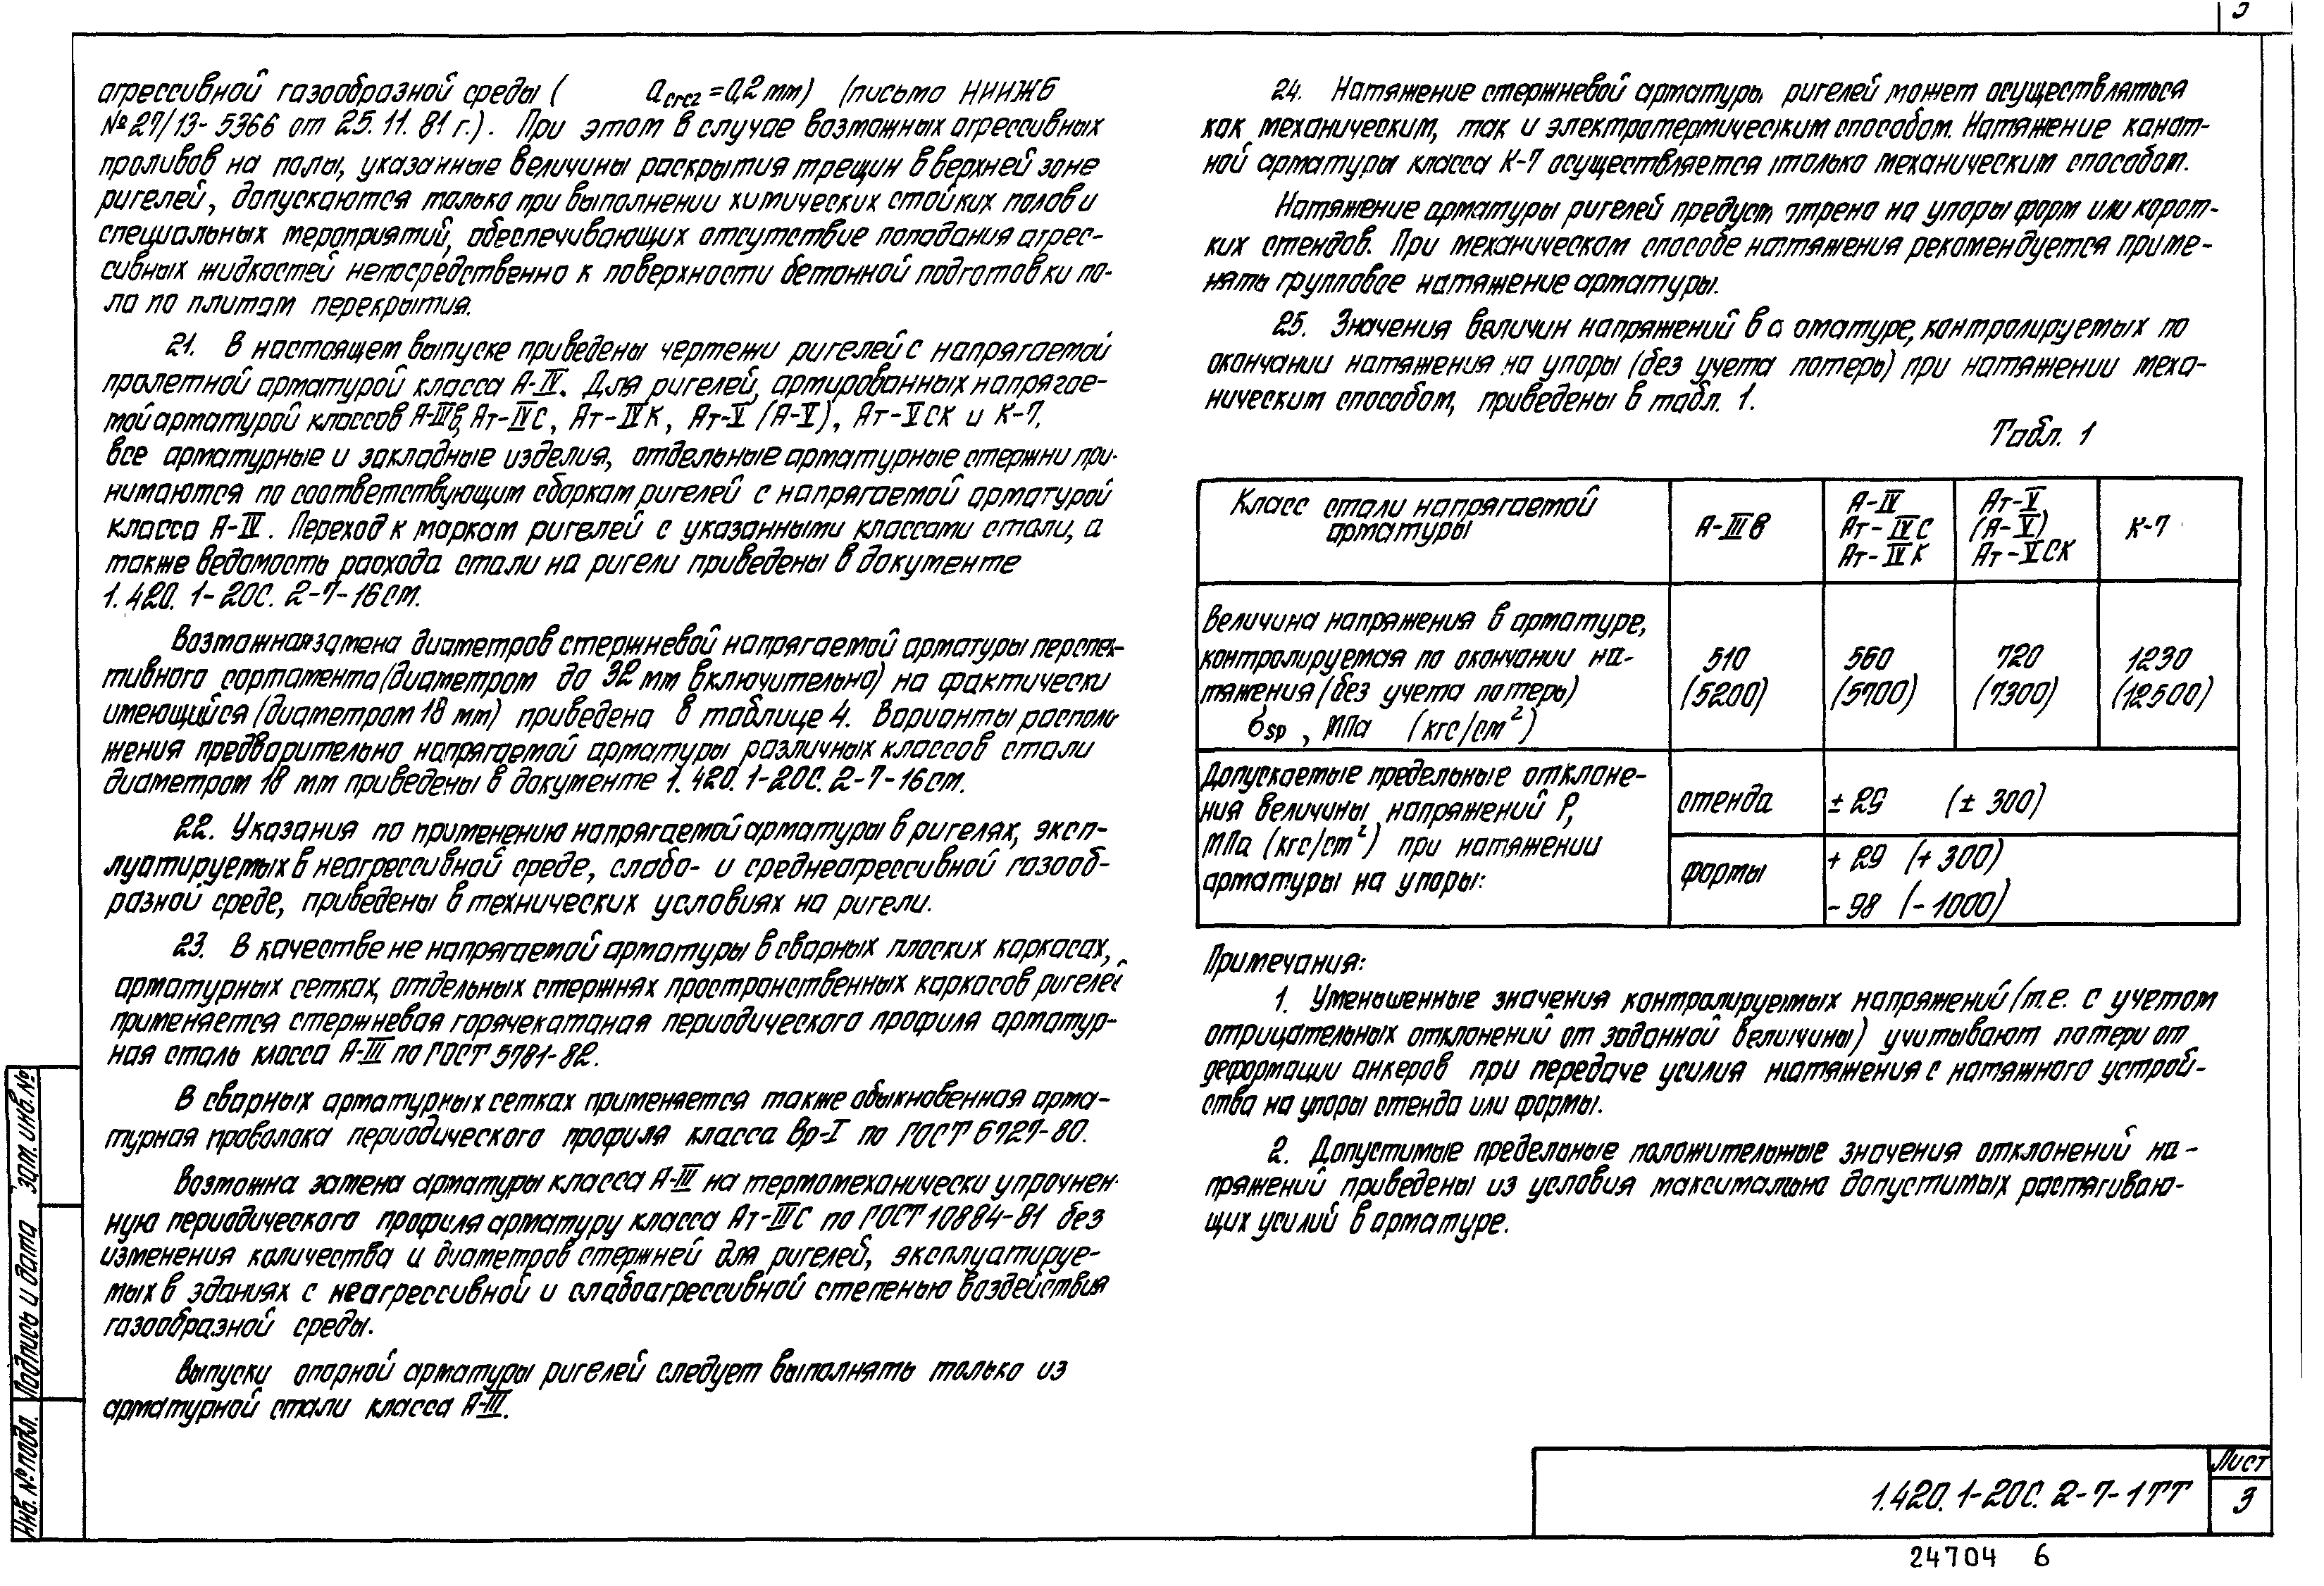 агрессивной газообразной среды ( acrc2 = 0,2 мм) (письмо НИИЖБ
№ 27/13-5366 от 25.11.81 г.). При этом в случае возможных агрессивных
проливов на полы, указанные величины раскрытия трещин в верхней зоне
ригелей, допускаются только при выполнении химических стойких полов и
специальных мероприятий, обеспечивающих отсутствие попадания агрес-
сивных жидкостей непосредственно к поверхности бетонной подготовки по-
ла по плитам перекрытия.
21. В настоящем выпуске приведены чертежи ригелей с напрягаемой
пролетной арматурой класса А-IV. Для ригелей, армированных напрягае-
мой арматурой классов А-IIIв, Ат-IVС, Ат-IVК, Ат-V (А-V), Ат-VСК и К-7,
все арматурные и закладные изделия, отдельные арматурные стержни при-
нимаются по соответствующим сборкам ригелей с напрягаемой арматурой
класса А-IV. Переход к маркам ригелей с указанными классами стали, а
также ведомость расхода стали на ригели приведены в документе
1.420.1-20с.2-7-16см.
Возможная замена диаметров стержневой напрягаемой арматуры перспек-
тивного сортамента (диаметром до 32 мм включительно) на фактически
имеющийся (диаметром 18 мм) приведена в таблице 4. Варианты располо
жения предварительно напрягаемой арматуры различных классов стали
диаметром 18 мм приведены в документе 1.420.1-20с.2-7-16см.
22. Указания по применению напрягаемой арматуры в ригелях, эксп-
луатируемых в неагрессивной среде, слабо- и среднеагрессивной газооб-
разной среде, приведены в технических условиях на ригели.
23. В качестве не напрягаемой арматуры в сварных плоских каркасах,
арматурных сетках, отдельных стержнях пространственных каркасов ригелей
применяется стержневая горячекатаная периодического профиля арматур-
ная сталь класса А-III по ГОСТ 5781-82.
В сварных арматурных сетках применяется также обыкновенная арма-
турная проволока периодического профиля класса Вр-I по ГОСТ 6727-80.
Возможна замена арматуры класса А-III на термомеханически упрочнен-
ную периодического профиля арматуру класса Ат-IIIС по ГОСТ 10884-81 без
изменения количества и диаметров стержней для ригелей, эксплуатируе-
мых в зданиях с неагрессивной и слабоагрессивной степенью воздействия
газообразной среды.
Выпуски опорной арматуры ригелей следует выполнять только из
арматурной стали класса А-III.
24. Натяжение стержневой арматуры ригелей может осуществляться
как механическим, так и электротермическим способом. Натяжение канат-
ной арматуры класса К-7 осуществляется только механическим способом.
Натяжение арматуры ригелей предусмотрено на упоры форм или корот-
ких стендов. При механическом способе натяжения рекомендуется приме-
нять групповое натяжение арматуры.
25. Значения величин напряжений в арматуре, контролируемых по
окончании натяжения на упоры (без учета потерь) при натяжении меха-
ническим способом, приведены в табл. 1.
Табл. 1
Класс стали напрягаемой
арматуры
А-IIIв
А-IV
Ат-IVС
Ат-IVК
Ат-V
(А-V)
Ат-VСК
К-7
Величина напряжения в арматуре,
контролируемая по окончании на-
тяжения (без учета потерь)
σsp, МПа (кгс/см²)
510
(5200)
560
(5700)
720
(7300)
1230
(12500)
Допускаемые предельные отклоне-
ния величины напряжений Р,
МПа (кгс/см²) при натяжении
арматуры на упоры:
стенда
± 29 (± 300)
формы
+ 29 (+ 300)
- 98 (- 1000)
Примечания:
1. Уменьшенные значения контролируемых напряжений (т.е. с учетом
отрицательных отклонений от заданной величины) учитывают потери от
деформации анкеров при передаче усилия натяжения с натяжного устрой-
ства на упоры стенда или формы.
2. Допустимые предельные положительные значения отклонений на-
пряжений приведены из условия максимально допустимых растягиваю-
щих усилий в арматуре.
Инв. № подл.
Подпись и дата
Зам. инв. №
1.420.1-20с.2-7-1ТТ
Лист
3
24704 6